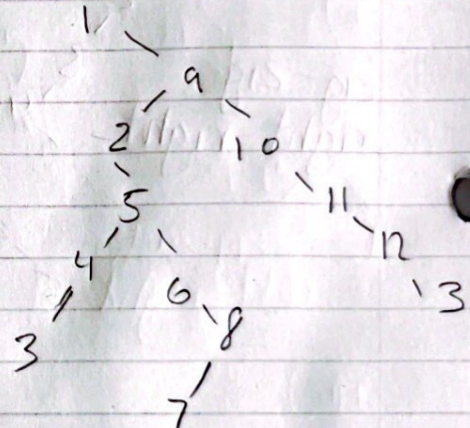 1
9
2 10
5 11
4 12
6 3
3 8
7